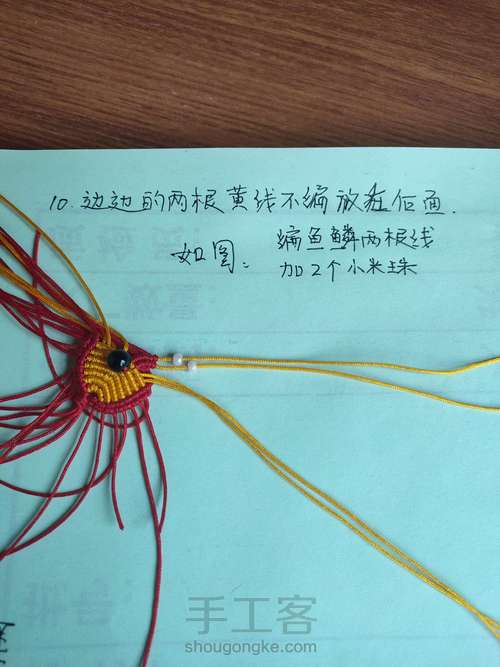 10. 边边的两根黄线不编放在后面.
如图、
编鱼鳞两根线
加2个小米珠
手工客
shougongke.com